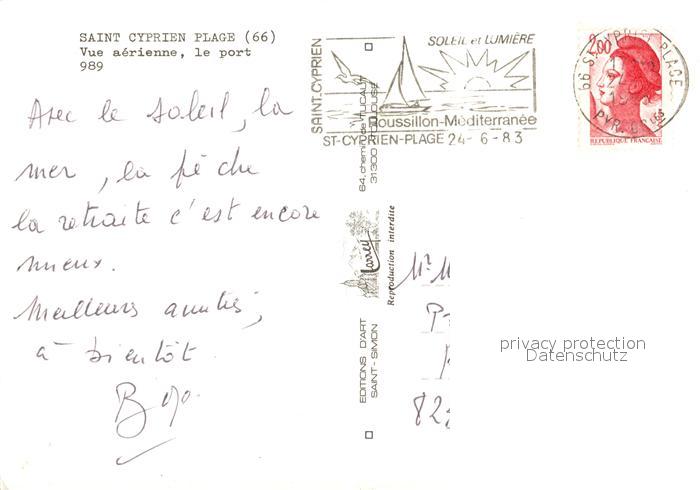 SAINT CYPRIEN PLAGE (66)
Vue aérienne, le port
989
Avec le soleil, la
mer, la pêche
la retraite c'est encore
mieux.
Meilleurs amitiés,
à bientôt
SAINT-CYPRIEN
SOLEIL et LUMIÈRE
Roussillon-Méditerranée
ST-CYPRIEN-PLAGE 24-6-83
2,00
REPUBLIQUE FRANÇAISE
66 ST CYPRIEN PLAGE
PYR.-OR.
64, chemin de
31300 TOULOUSE
Larrey
Reproduction interdite
EDITIONS D'ART
SAINT-SIMON
Mr M
P
822
privacy protection
Datenschutz